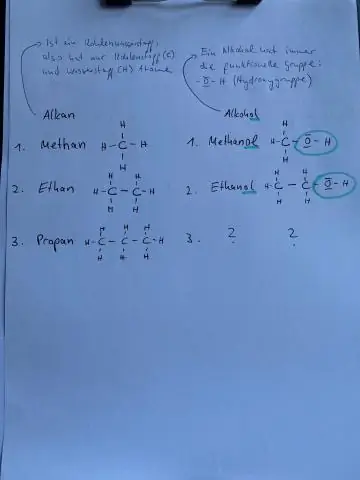 Ist ein Kohlenwasserstoff,
also hat nur Kohlenstoff (C)
und Wasserstoff (H) Atome
Ein Alkohol hat immer
die funktionelle Gruppe:
-O-H (Hydroxygruppe)
Alkan
Alkohol
1. Methan
H
H-C-H
H
1. Methanol
H
H-C-O-H
H
2. Ethan
H H
H-C-C-H
H H
2. Ethanol
H H
H-C-C-O-H
H H
3. Propan
H H H
H-C-C-C-H
H H H
3. ? ?